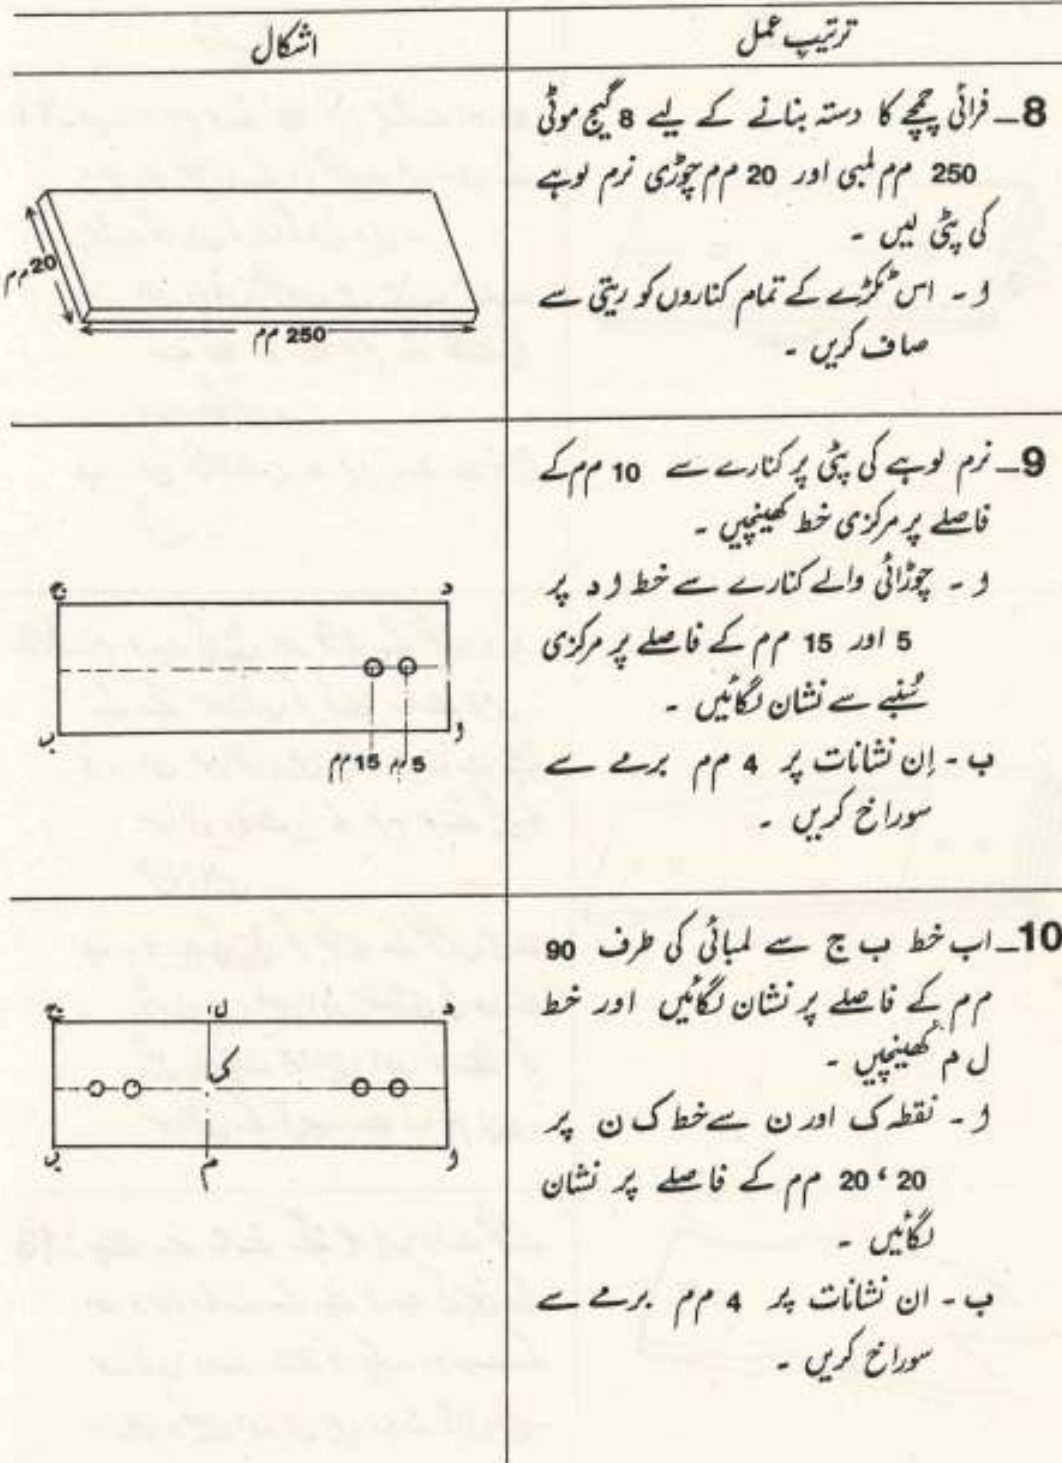 ترتیب عمل
اشکال
8۔ فرائی چمچے کا دستہ بنانے کے لیے 8 گیج موٹی
250 م م لمبی اور 20 م م چوڑی نرم لوہے
کی پٹی لیں ۔
ا ۔ اس ٹکڑے کے تمام کناروں کو ریتی سے
صاف کریں ۔
20 م م
250 م م
9۔ نرم لوہے کی پٹی پر کنارے سے 10 م م کے
فاصلے پر مرکزی خط کھینچیں ۔
ا ۔ چوڑائی والے کنارے سے خط ا د پر
5 اور 15 م م کے فاصلے پر مرکزی
سُنبے سے نشان لگائیں ۔
ب ۔ اِن نشانات پر 4 م م برمے سے
سوراخ کریں ۔
د
ج
ا
ب
5 م م
15 م م
10۔ اب خط ب ج سے لمبائی کی طرف 90
م م کے فاصلے پر نشان لگائیں اور خط
ل م کھینچیں ۔
ا ۔ نقطہ ک اور ن سے خط ک ن پر
20 ، 20 م م کے فاصلے پر نشان
لگائیں ۔
ب ۔ ان نشانات پر 4 م م برمے سے
سوراخ کریں ۔
د
ل
ج
ک
ا
م
ب